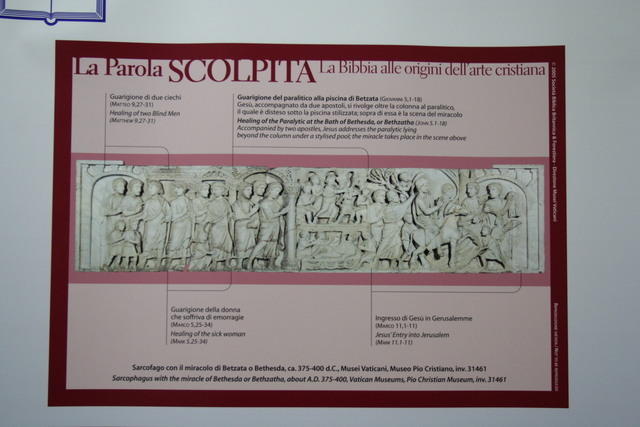 La Parola SCOLPITA La Bibbia alle origini dell'arte cristiana
Guarigione di due ciechi
(MATTEO 9,27-31)
Healing of two Blind Men
(MATTHEW 9.27-31)
Guarigione del paralitico alla piscina di Betzata (GIOVANNI 5,1-18)
Gesù, accompagnato da due apostoli, si rivolge oltre la colonna al paralitico,
il quale è disteso sotto la piscina stilizzata; sopra di essa è la scena del miracolo
Healing of the Paralytic at the Bath of Bethesda, or Bethzatha (JOHN 5.1-18)
Accompanied by two apostles, Jesus addresses the paralytic lying
beyond the column under a stylised pool; the miracle takes place in the scene above
Guarigione della donna
che soffriva di emorragie
(MARCO 5,25-34)
Healing of the sick woman
(MARK 5.25-34)
Ingresso di Gesù in Gerusalemme
(MARCO 11,1-11)
Jesus' Entry into Jerusalem
(MARK 11.1-11)
Sarcofago con il miracolo di Betzata o Bethesda, ca. 375-400 d.C., Musei Vaticani, Museo Pio Cristiano, inv. 31461
Sarcophagus with the miracle of Bethesda or Bethzatha, about A.D. 375-400, Vatican Museums, Pio Christian Museum, inv. 31461
© 2005 Società Biblica Britannica & Forestiera - Direzione Musei Vaticani
RIPRODUZIONE VIETATA / NOT TO BE REPRODUCED